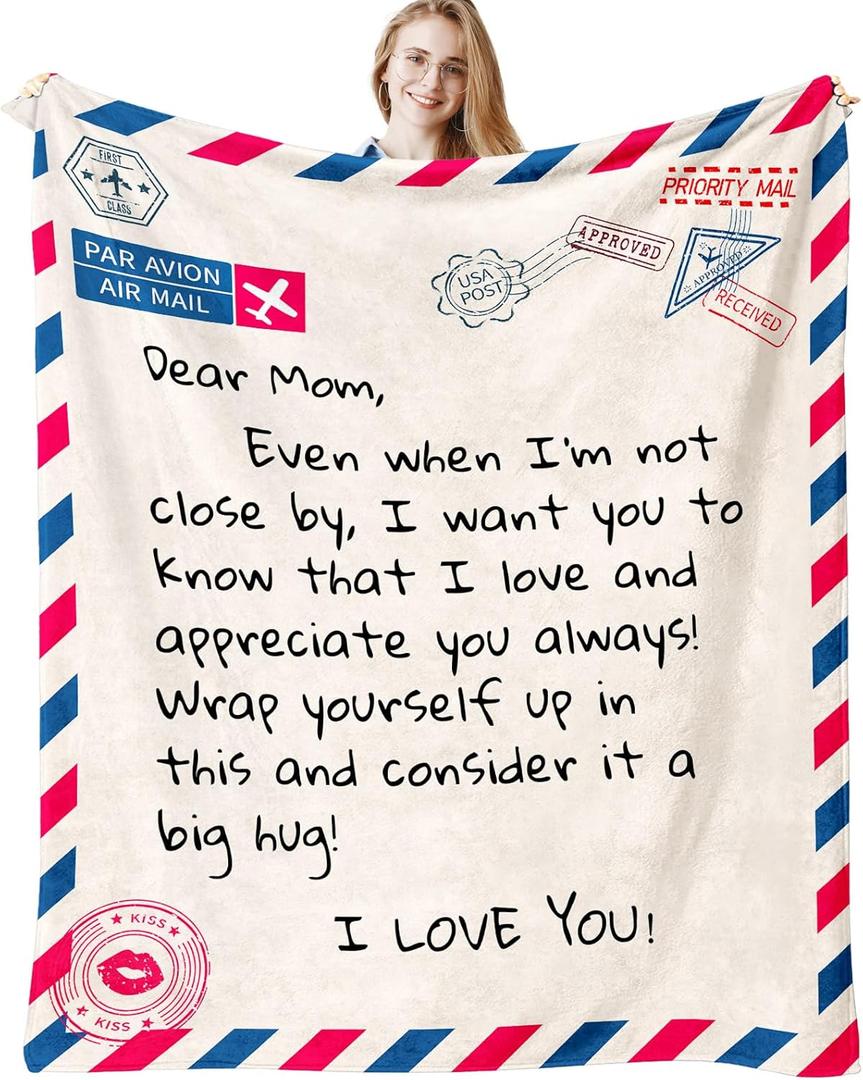 FIRST
CLASS
PRIORITY MAIL
PAR AVION
AIR MAIL
USA
POST
APPROVED
APPROVED
RECEIVED
Dear Mom,
Even when I'm not
close by, I want you to
know that I love and
appreciate you always!
Wrap yourself up in
this and consider it a
big hug!
I LOVE YOU!
KISS
KISS